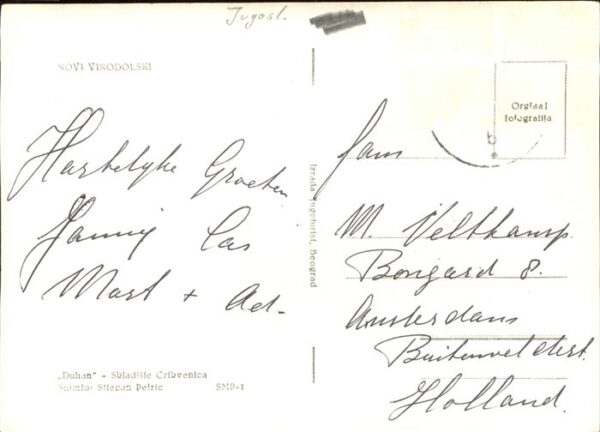 Jugosl.
NOVI VINODOLSKI
Hartelyke Groeten
Jannij Cas
Mart + Ad-
„Duhan" - Skladište Crikvenica
Snimio: Stjepan Petrić SMP-1
Izrada Jugoturist, Beograd
Orginal
fotografija
fam
M. Veltkamp.
Bongard 8.
Amsterdam
Buitenveldert.
Holland.